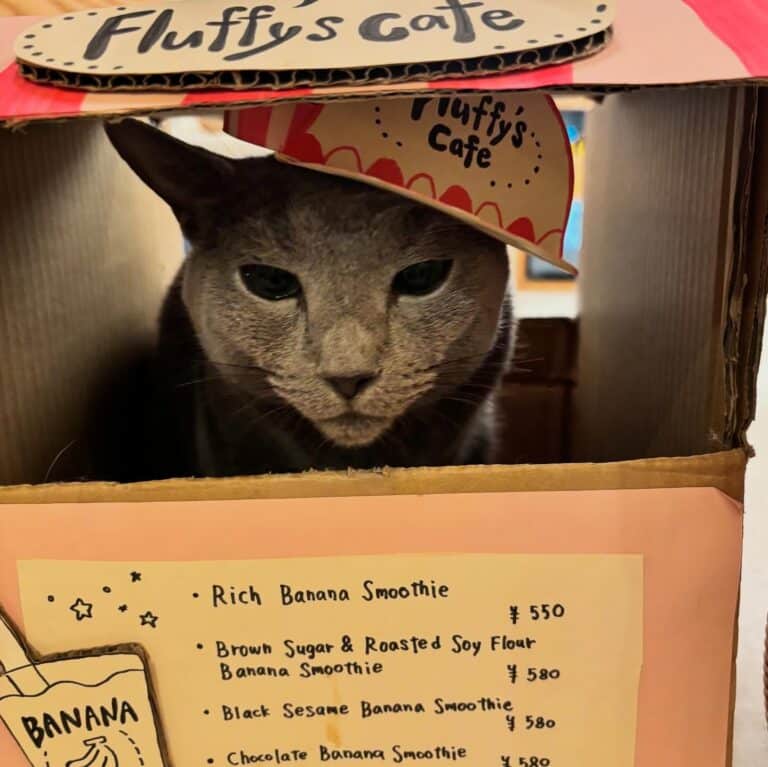 Fluffy's cafe
Fluffy's
Cafe
• Rich Banana Smoothie
¥ 550
• Brown Sugar & Roasted Soy Flour
Banana Smoothie
¥ 580
• Black Sesame Banana Smoothie
¥ 580
• Chocolate Banana Smoothie
¥ 580
BANANA